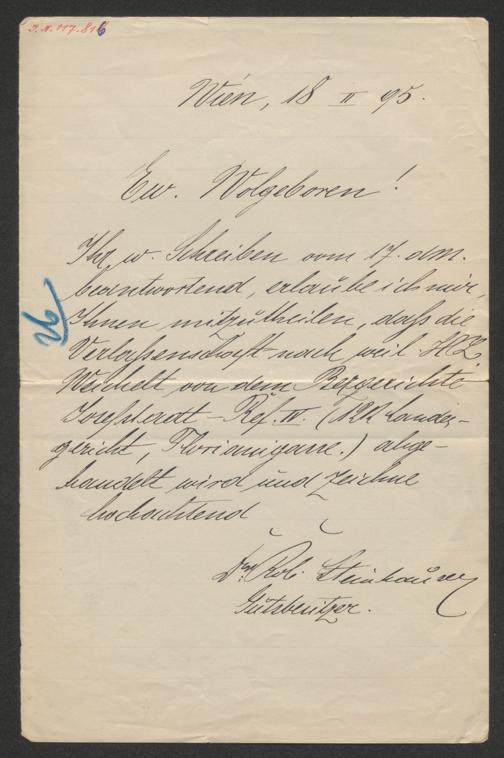 I.N. 117.816
Wien, 18 II 95.
Ew. Wolgeboren!
Ihr w. Schreiben vom 17. dm.
beantwortend, erlaube ich mir,
Ihnen mitzutheilen, daß die
Verlassenschaft nach weil.
Weichelt von dem Bezgerichte
Josefstadt – Ref. IV. (KK Landes-
gericht, Florianigasse.) abge-
handelt wird und zeichne
hochachtend
Dr. Rob. Steinhauser
Gutsbesitzer.